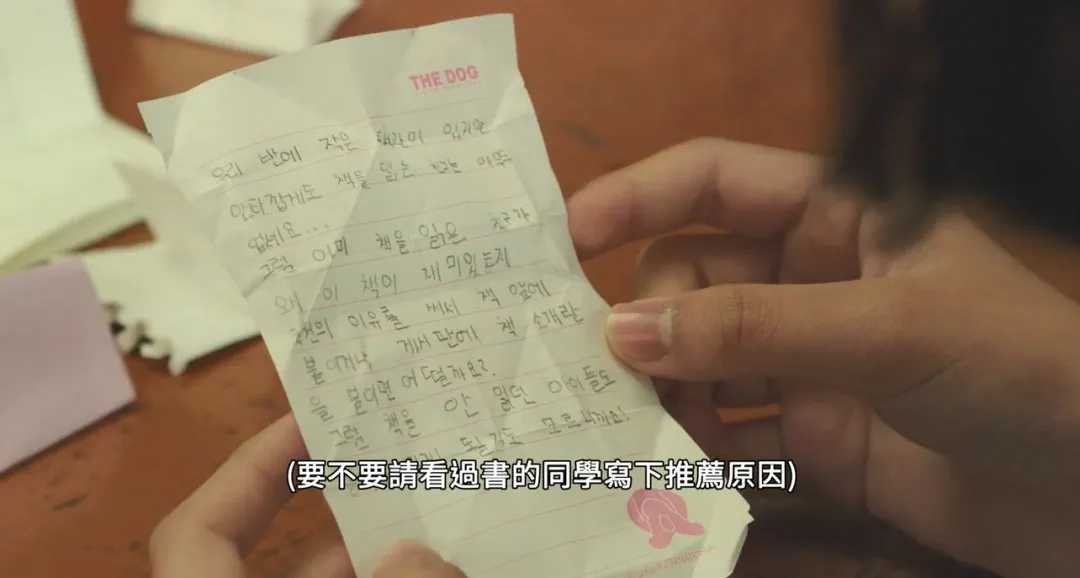 THE DOG
우리 반에 작은 책장이 있지만
안타깝게도 책을 읽는 친구는 아무도
없네요...
그럼 이미 책을 읽은 친구가
왜 이 책이 재미있는지
추천의 이유를 써서 책 앞에
붙이거나 게시판에 책 소개란
을 붙이면 어떨까요?
그럼 책을 안 읽던 아이들도
될지도 모르니까요!
(要不要請看過書的同學寫下推薦原因)